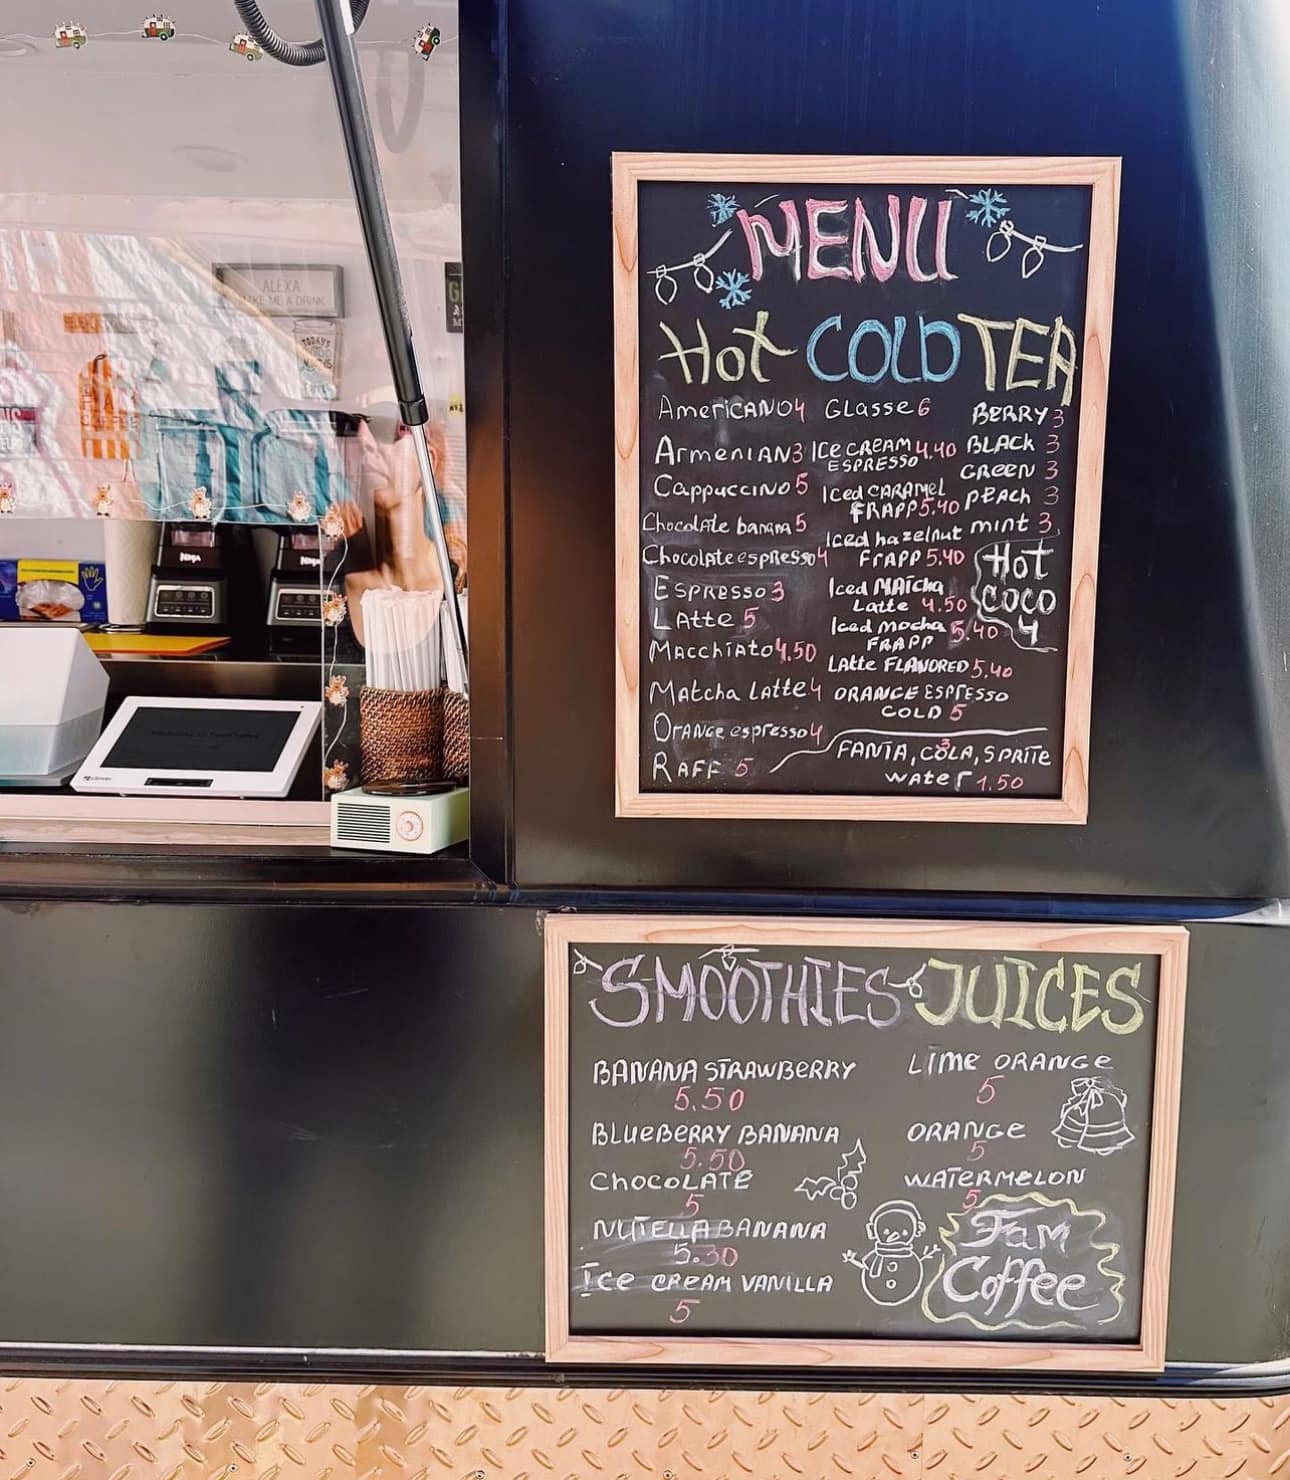 ALEXA
MAKE ME A DRINK
TODAY'S
NINJA
NINJA
MENU
Hot COLD TEA
AmericANO 4
ArmeniAN 3
CAppucciNO 5
ChocolAte banana 5
Chocolate espResso 4
EspResso 3
LAtte 5
MAcchiato 4.50
MAtcha LAtte 4
ORANGe espresso 4
RAFF 5
GLASSe 6
Ice CREAM 4.40
ESPRESSO
Iced CARAMel
FRAPP 5.40
Iced hazelnut
FrAPP 5.40
Iced MATcha
LaTte 4.50
Iced mocha 5.40
FRAPP
LAtte FLAVORED 5.40
ORANGE ESPresso
COLD 5
BeRRY 3
BLACK 3
GREEN 3
PEACH 3
mint 3
Hot
COCO
4
FANTA, COLA, SPRITE
3
WATeR 1.50
SMOOTHIES JUICES
BANANA STRAWBeRRY
5.50
BLUeBeRRY BANANA
5.50
CHOCOLATE
5
NUTELLA BANANA
5.30
Ice CREAM VANILLA
5
LIME ORANGE
5
ORANGE
5
WATERMELON
5
Jam
Coffee